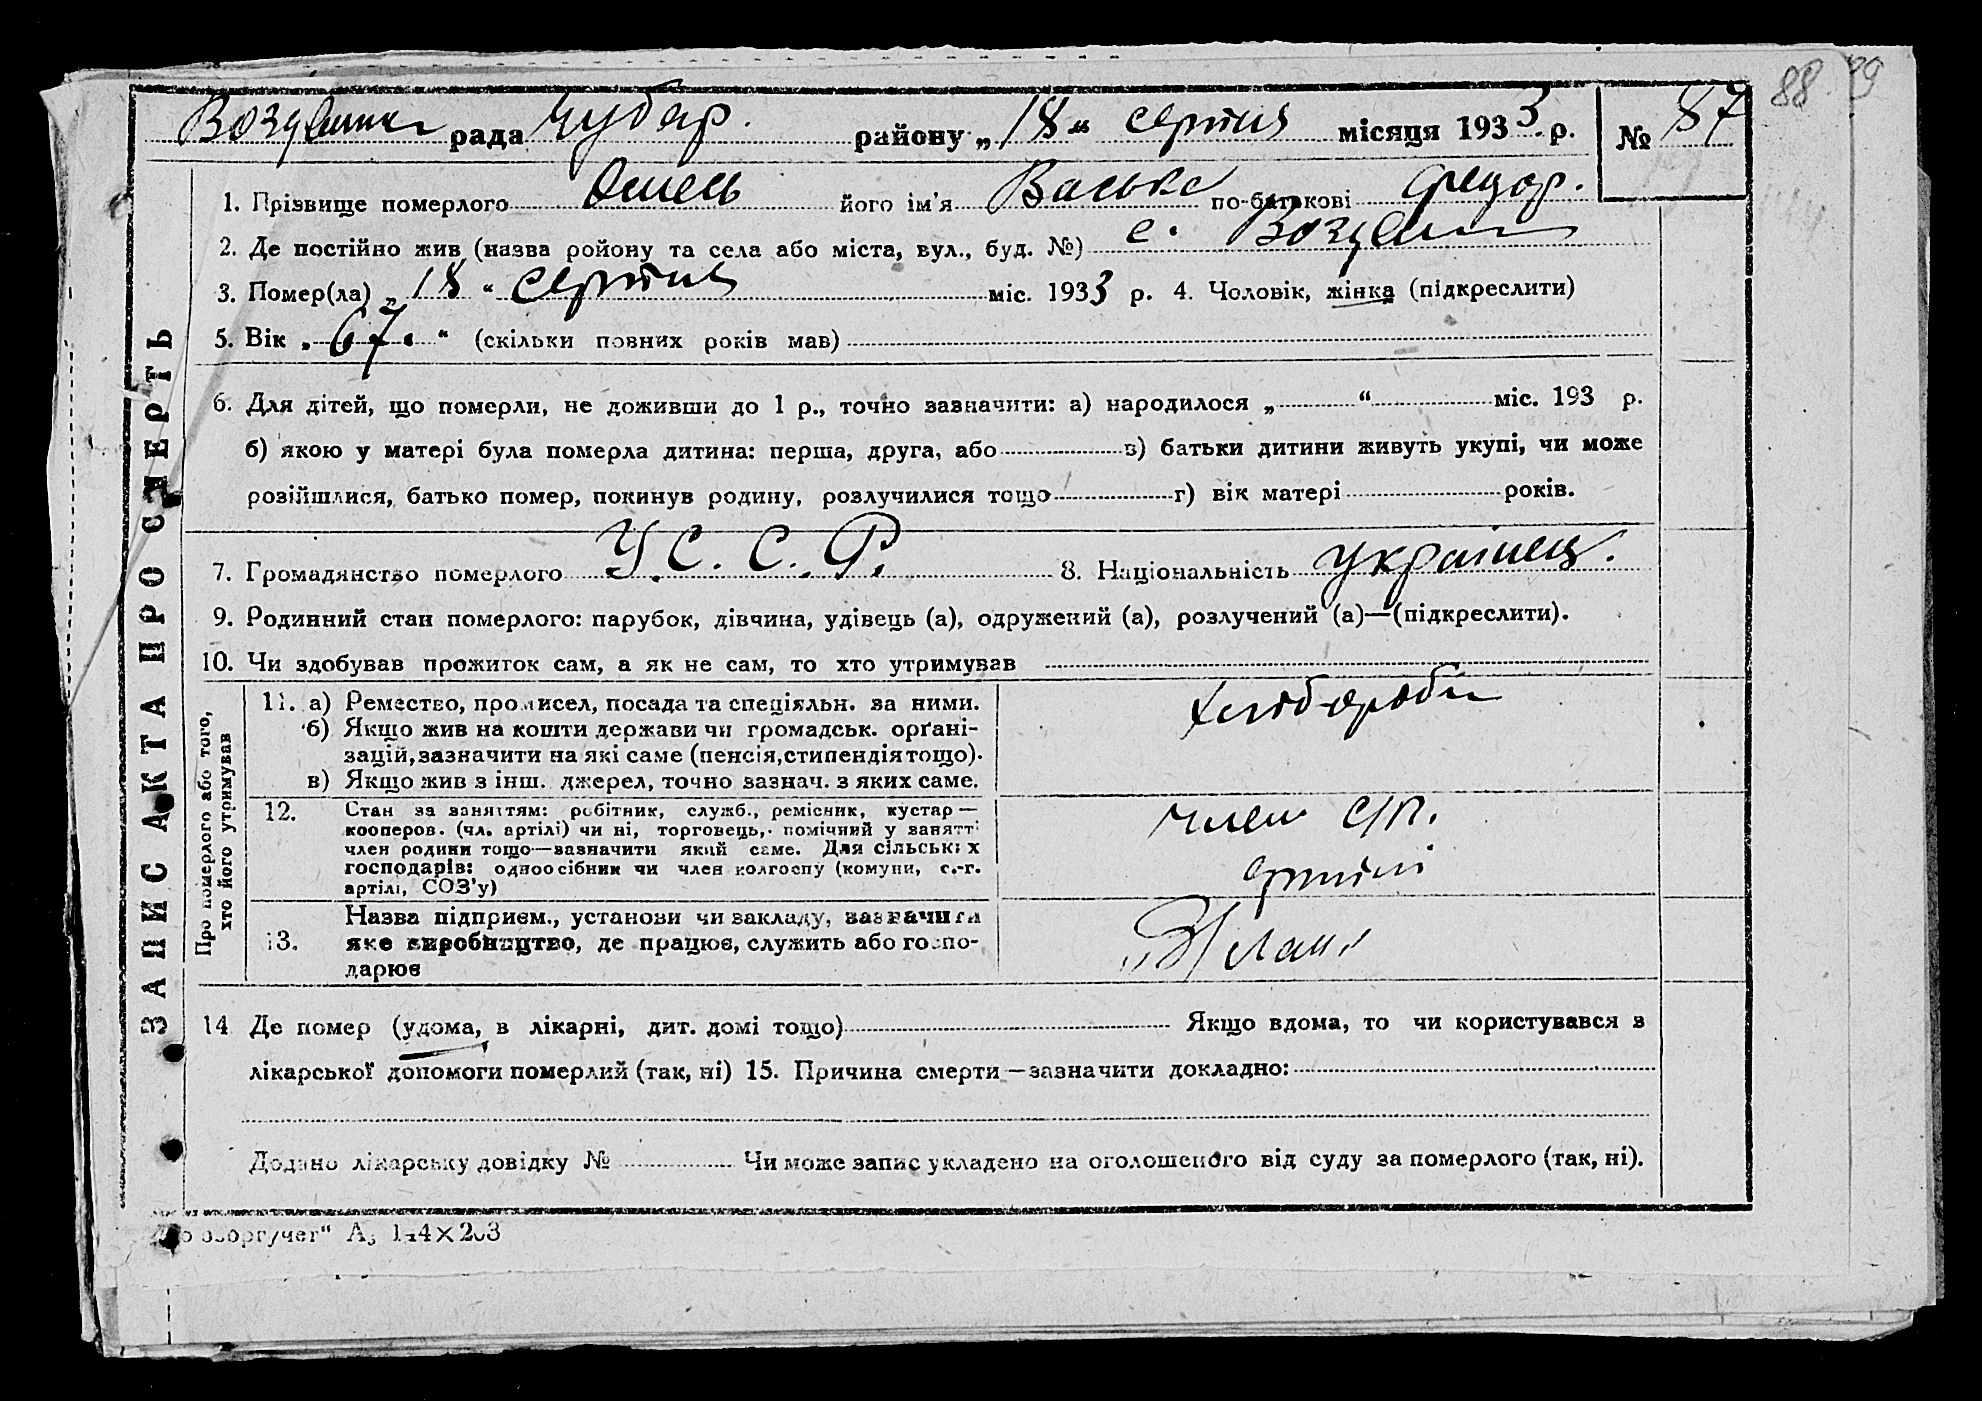 88
рада Чубар. району „18“ серпня місяця 1933 р. № 87
1. Прізвище померлого Омель його ім'я Ваське по-батькові Федор.
2. Де постійно жив (назва ройону та села або міста, вул., буд. №) с.
3. Помер(ла) „18“ серпня міс. 1933 р. 4. Чоловік, жінка (підкреслити)
5. Вік „67“ (скільки повних років мав)
6. Для дітей, що померли, не доживши до 1 р., точно зазначити: а) народилося „ “ міс. 193 р.
б) якою у матері була померла дитина: перша, друга, або в) батьки дитини живуть укупі, чи може
розійшлися, батько помер, покинув родину, розлучилися тощо г) вік матері років.
7. Громадянство померлого У.С.С.Р. 8. Національність українец.
9. Родинний стан померлого: парубок, дівчина, удівець (а), одружений (а), розлучений (а)—(підкреслити).
10. Чи здобував прожиток сам, а як не сам, то хто утримував
ЗАПИС АКТА ПРО СМЕРТЬ
Про померлого або того,
хто його утримував
11. а) Ремество, промисел, посада та спеціяльн. за ними.
б) Якщо жив на кошти держави чи громадськ. орґані-
зацій, зазначити на які саме (пенсія, стипендія тощо).
в) Якщо жив з інш. джерел, точно зазнач. з яких саме.
хлібороби
12. Стан за заняттям: робітник, служб., ремісник, кустар —
кооперов. (чл. артілі) чи ні, торговець, помічний у занятті
член родини тощо—зазначити який саме. Для сільських
господарів: одноосібник чи член колгоспу (комуни, с.-г.
артілі, СОЗ'у)
член с/г.
артілі
13. Назва підприєм., установи чи закладу, зазначити
яке виробництво, де працює, служить або госпо-
дарює
14 Де помер (удома, в лікарні, дит. домі тощо) Якщо вдома, то чи користувався з
лікарської допомоги померлий (так, ні) 15. Причина смерти—зазначити докладно:
Додано лікарську довідку № Чи може запис укладено на оголошеного від суду за померлого (так, ні).